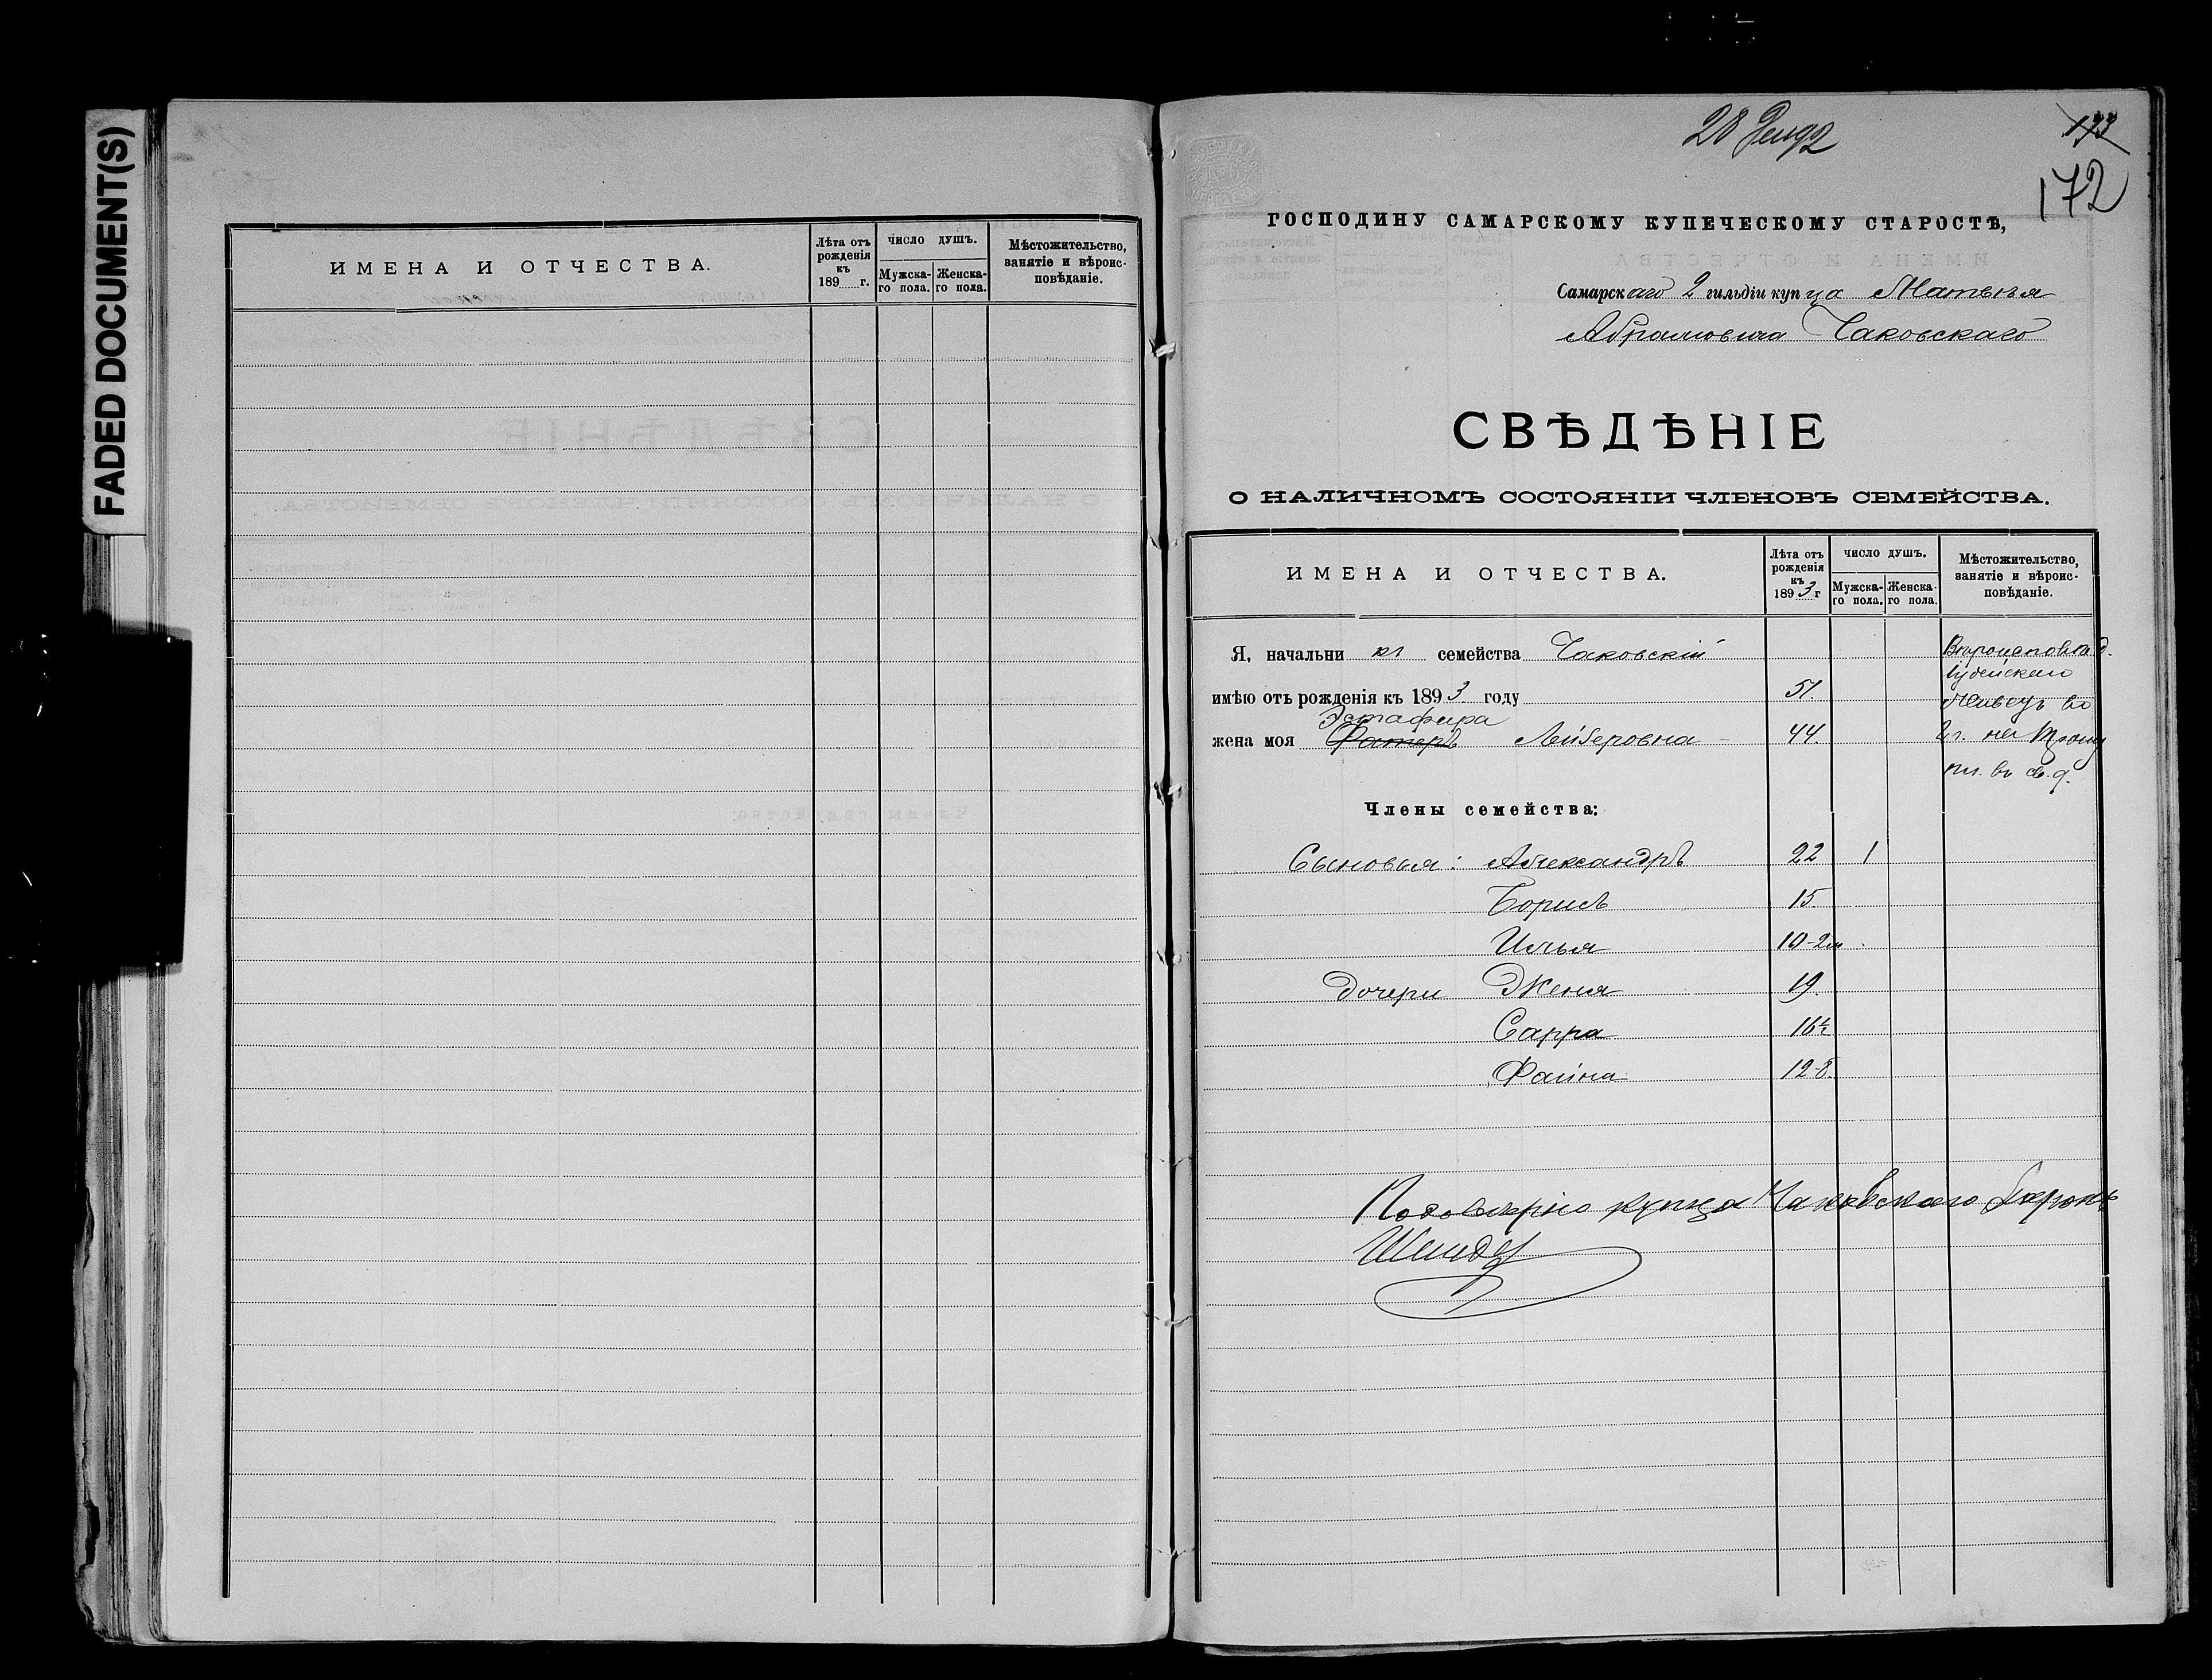 FADED DOCUMENT(S)
ИМЕНА И ОТЧЕСТВА.
Лѣта отъ рожденія къ 189 г.
ЧИСЛО ДУШЪ.
Мужска-го пола.
Женска-го пола.
Мѣстожительство, занятіе и вѣроис-повѣданіе.
28
172
ГОСПОДИНУ САМАРСКОМУ КУПЕЧЕСКОМУ СТАРОСТѢ,
Самарскаго 2 гильдіи купца Матвѣя
Абрамовича Чаковскаго
СВѢДѢНІЕ
О НАЛИЧНОМЪ СОСТОЯНІИ ЧЛЕНОВЪ СЕМЕЙСТВА.
ИМЕНА И ОТЧЕСТВА.
Лѣта отъ рожденія къ 1893 г
ЧИСЛО ДУШЪ.
Мужска-го пола.
Женска-го пола.
Мѣстожительство, занятіе и вѣроис-повѣданіе.
Я, начальникъ семейства Чаковскій
Вѣроисповѣд.
Іудейскаго
имѣю отъ рожденія къ 1893 году 51.
Живетъ во
Эстафира
жена моя Фатеръ Лейберовна 44.
2 г. на
пл. въ св. д.
Члены семейства:
Сыновья: Александръ 22 1
Борисъ 15
Илья 10-2м
Дочери Женя 19.
Сарра 16½
Фаина 12-8.
Подовѣрію купца Чаковскаго